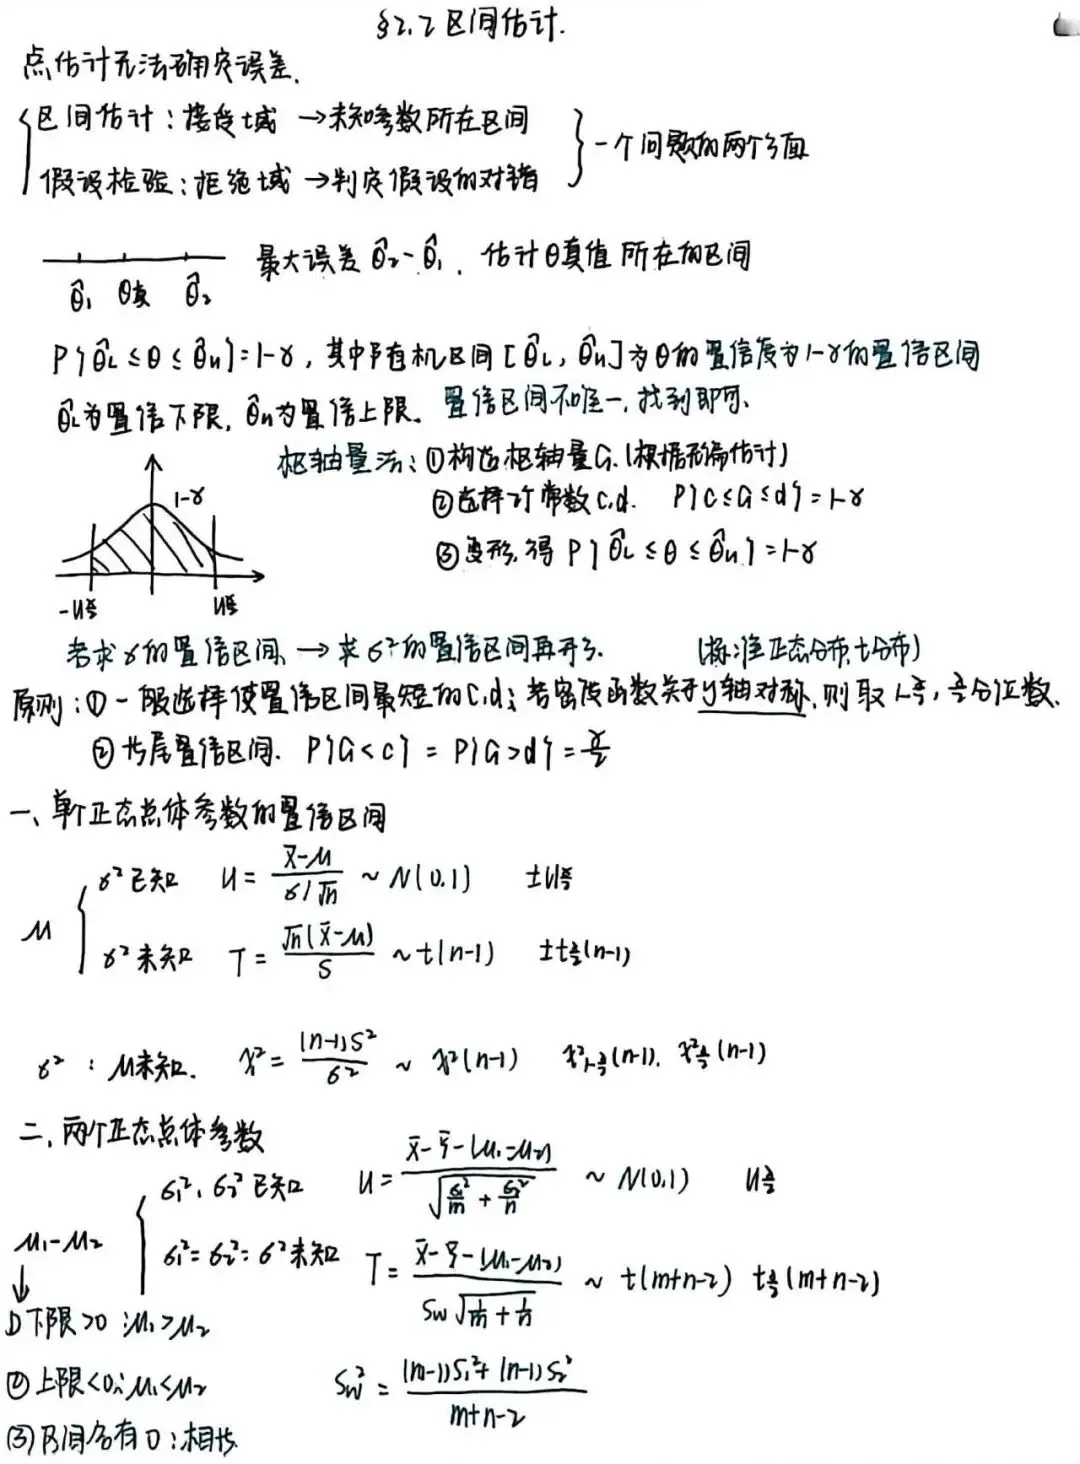 §2.2 区间估计.
点估计无法确定误差.
区间估计：接受域 →未知参数所在区间
假设检验：拒绝域 →判定假设的对错
}一个问题的两个方面
θ̂₁ θ真 θ̂₂
最大误差 θ̂₂-θ̂₁. 估计θ真值所在的区间
P{θ̂L ≤ θ ≤ θ̂u}=1-α, 其中随机区间[θ̂L, θ̂u]为θ的置信度为1-α的置信区间
θ̂L为置信下限, θ̂u为置信上限. 置信区间不唯一, 找到即可.
枢轴量法：①构造枢轴量G.(根据无偏估计)
②选择2个常数c,d. P{c≤G≤d}=1-α
③变形,得 P{θ̂L ≤ θ ≤ θ̂u}=1-α
1-α
-u α/2 u α/2
若求σ的置信区间 → 求σ²的置信区间再开方.
(标准正态分布,t分布)
原则：①一般选择使置信区间最短的c,d; 若密度函数关于y轴对称,则取1-α/2, α/2分位数.
②等尾置信区间. P{G<c} = P{G>d} = α/2
一、单个正态总体参数的置信区间
μ
σ²已知 U = (x̄-μ)/(σ/√n) ~ N(0,1) ±u α/2
σ²未知 T = √n(x̄-μ)/S ~ t(n-1) ±t α/2 (n-1)
σ²：μ未知. χ² = (n-1)S²/σ² ~ χ²(n-1) χ² 1-α/2 (n-1). χ² α/2 (n-1)
二、两个正态总体参数
μ₁-μ₂
σ₁², σ₂²已知 U = (x̄-ȳ-(μ₁-μ₂))/√(σ₁²/m + σ₂²/n) ~ N(0,1) u α/2
σ₁²=σ₂²=σ²未知 T = (x̄-ȳ-(μ₁-μ₂))/(Sw√(1/m + 1/n)) ~ t(m+n-2) t α/2 (m+n-2)
↓
①下限>0：μ₁>μ₂
②上限<0：μ₁<μ₂
Sw² = ((m-1)S₁²+(n-1)S₂²)/(m+n-2)
③区间含有0：相等